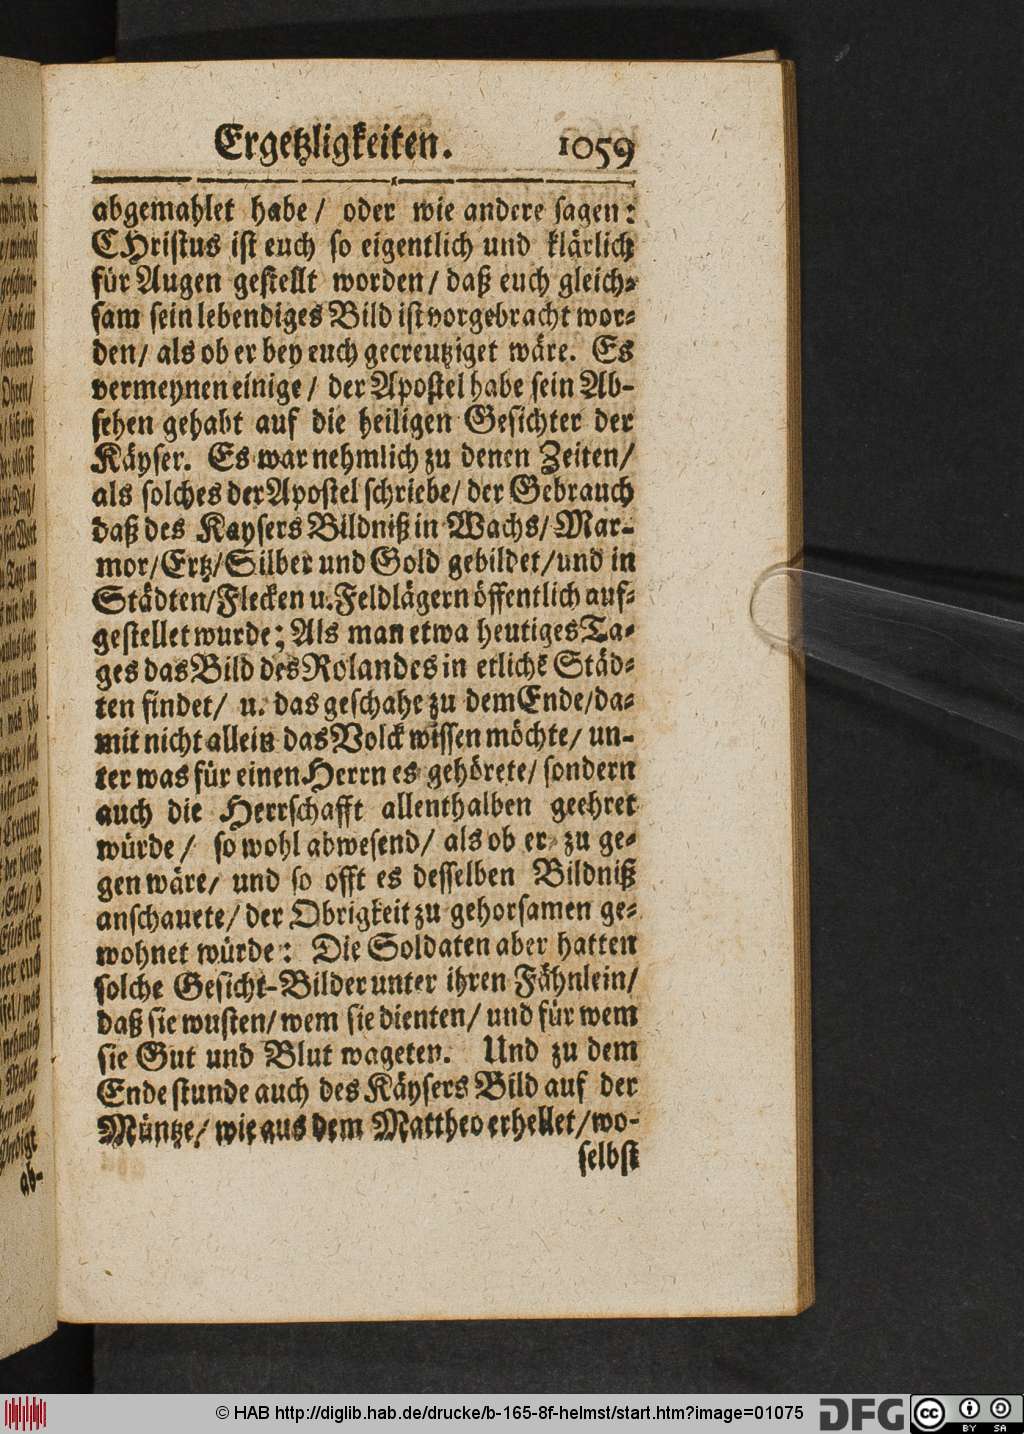 Ergetzligkeiten. 1059
abgemahlet habe/ oder wie andere sagen:
CHristus ist euch so eigentlich und klärlich
für Augen gestellt worden/ daß euch gleich-
sam sein lebendiges Bild ist vorgebracht wor-
den/ als ob er bey euch gecreutziget wäre. Es
vermeynen einige/ der Apostel habe sein Ab-
sehen gehabt auf die heiligen Gesichter der
Käyser. Es war nehmlich zu denen Zeiten/
als solches der Apostel schriebe/ der Gebrauch
daß des Kaysers Bildniß in Wachs/ Mar-
mor/ Ertz/ Silber und Gold gebildet/ und in
Städten/ Flecken u. Feldlägern öffentlich auf-
gestellet wurde; Als man etwa heutiges Ta-
ges das Bild des Rolandes in etliche Städ-
ten findet/ u. das geschahe zu dem Ende/ da-
mit nicht allein das Volck wissen möchte/ un-
ter was für einen Herrn es gehörete/ sondern
auch die Herrschafft allenthalben geehret
würde/ so wohl abwesend/ als ob er zu ge-
gen wäre/ und so offt es desselben Bildniß
anschauete/ der Obrigkeit zu gehorsamen ge-
wohnet würde: Die Soldaten aber hatten
solche Gesicht-Bilder unter ihren Fähnlein/
daß sie wusten/ wem sie dienten/ und für wem
sie Gut und Blut wageten. Und zu dem
Ende stunde auch des Käysers Bild auf der
Müntze/ wie aus dem Mattheo erhellet/ wo-
selbst
ab-
© HAB http://diglib.hab.de/drucke/b-165-8f-helmst/start.htm?image=01075
DFG
cc BY SA